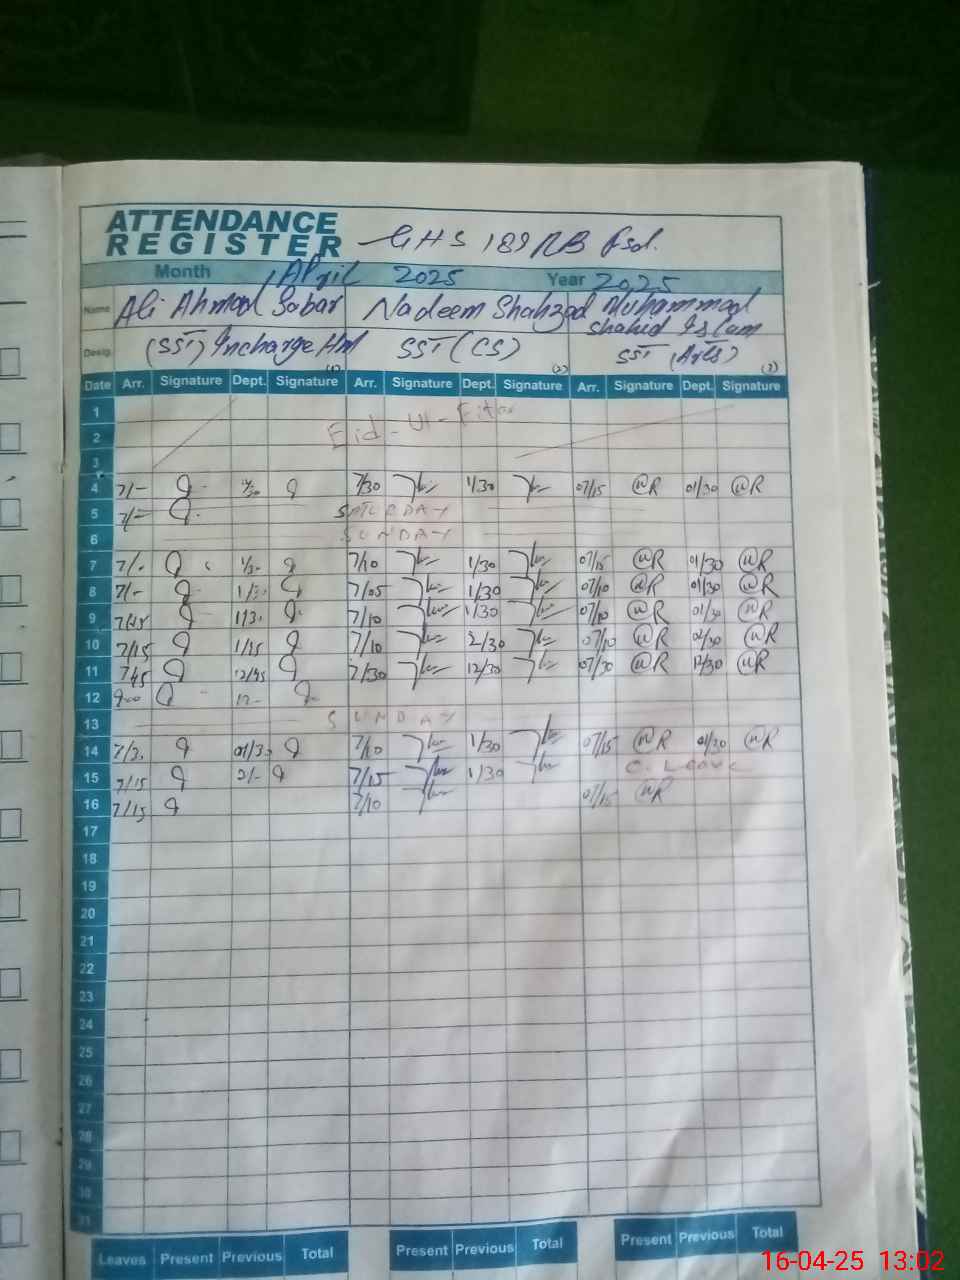 ATTENDANCE
REGISTER GHS 189 RB Fsd.
Month April 2025 Year 2025
Name Ali Ahmad Sabar Nadeem Shahzad Muhammad
Shahid Islam
Desig. (SST) Incharge Hm SST (CS) SST (Arts)
(1) (2) (3)
Date Arr. Signature Dept. Signature Arr. Signature Dept. Signature Arr. Signature Dept. Signature
1
2 Eid-Ul-Fitar
3
4 7/- 7/30 1/30 07/15 01/30
5 7/- SATURDAY
6 SUNDAY
7 7/- 1/30 7/10 1/30 07/15 01/30
8 7/- 1/30 7/05 1/30 07/10 01/30
9 1/30 7/10 1/30 07/10 01/30
10 7/15 1/45 7/10 2/30 07/10 02/30
11 7/45 12/45 7/30 12/30 07/30 12/30
12 12-
13 SUNDAY
14 7/30 01/30 7/10 1/30 07/15 01/30
15 7/15 2/- 7/15 1/30 C. Leave
16 7/15 7/10 07/15
17
18
19
20
21
22
23
24
25
26
27
28
29
30
31
Leaves Present Previous Total Present Previous Total Present Previous Total
16-04-25 13:02